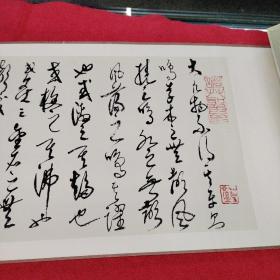 大凡物不得其平则
鸣草木之无声风
挠之鸣水之无声
风荡之鸣其跃
也或激之其趋也
或梗之其沸也
或炙之金石之无